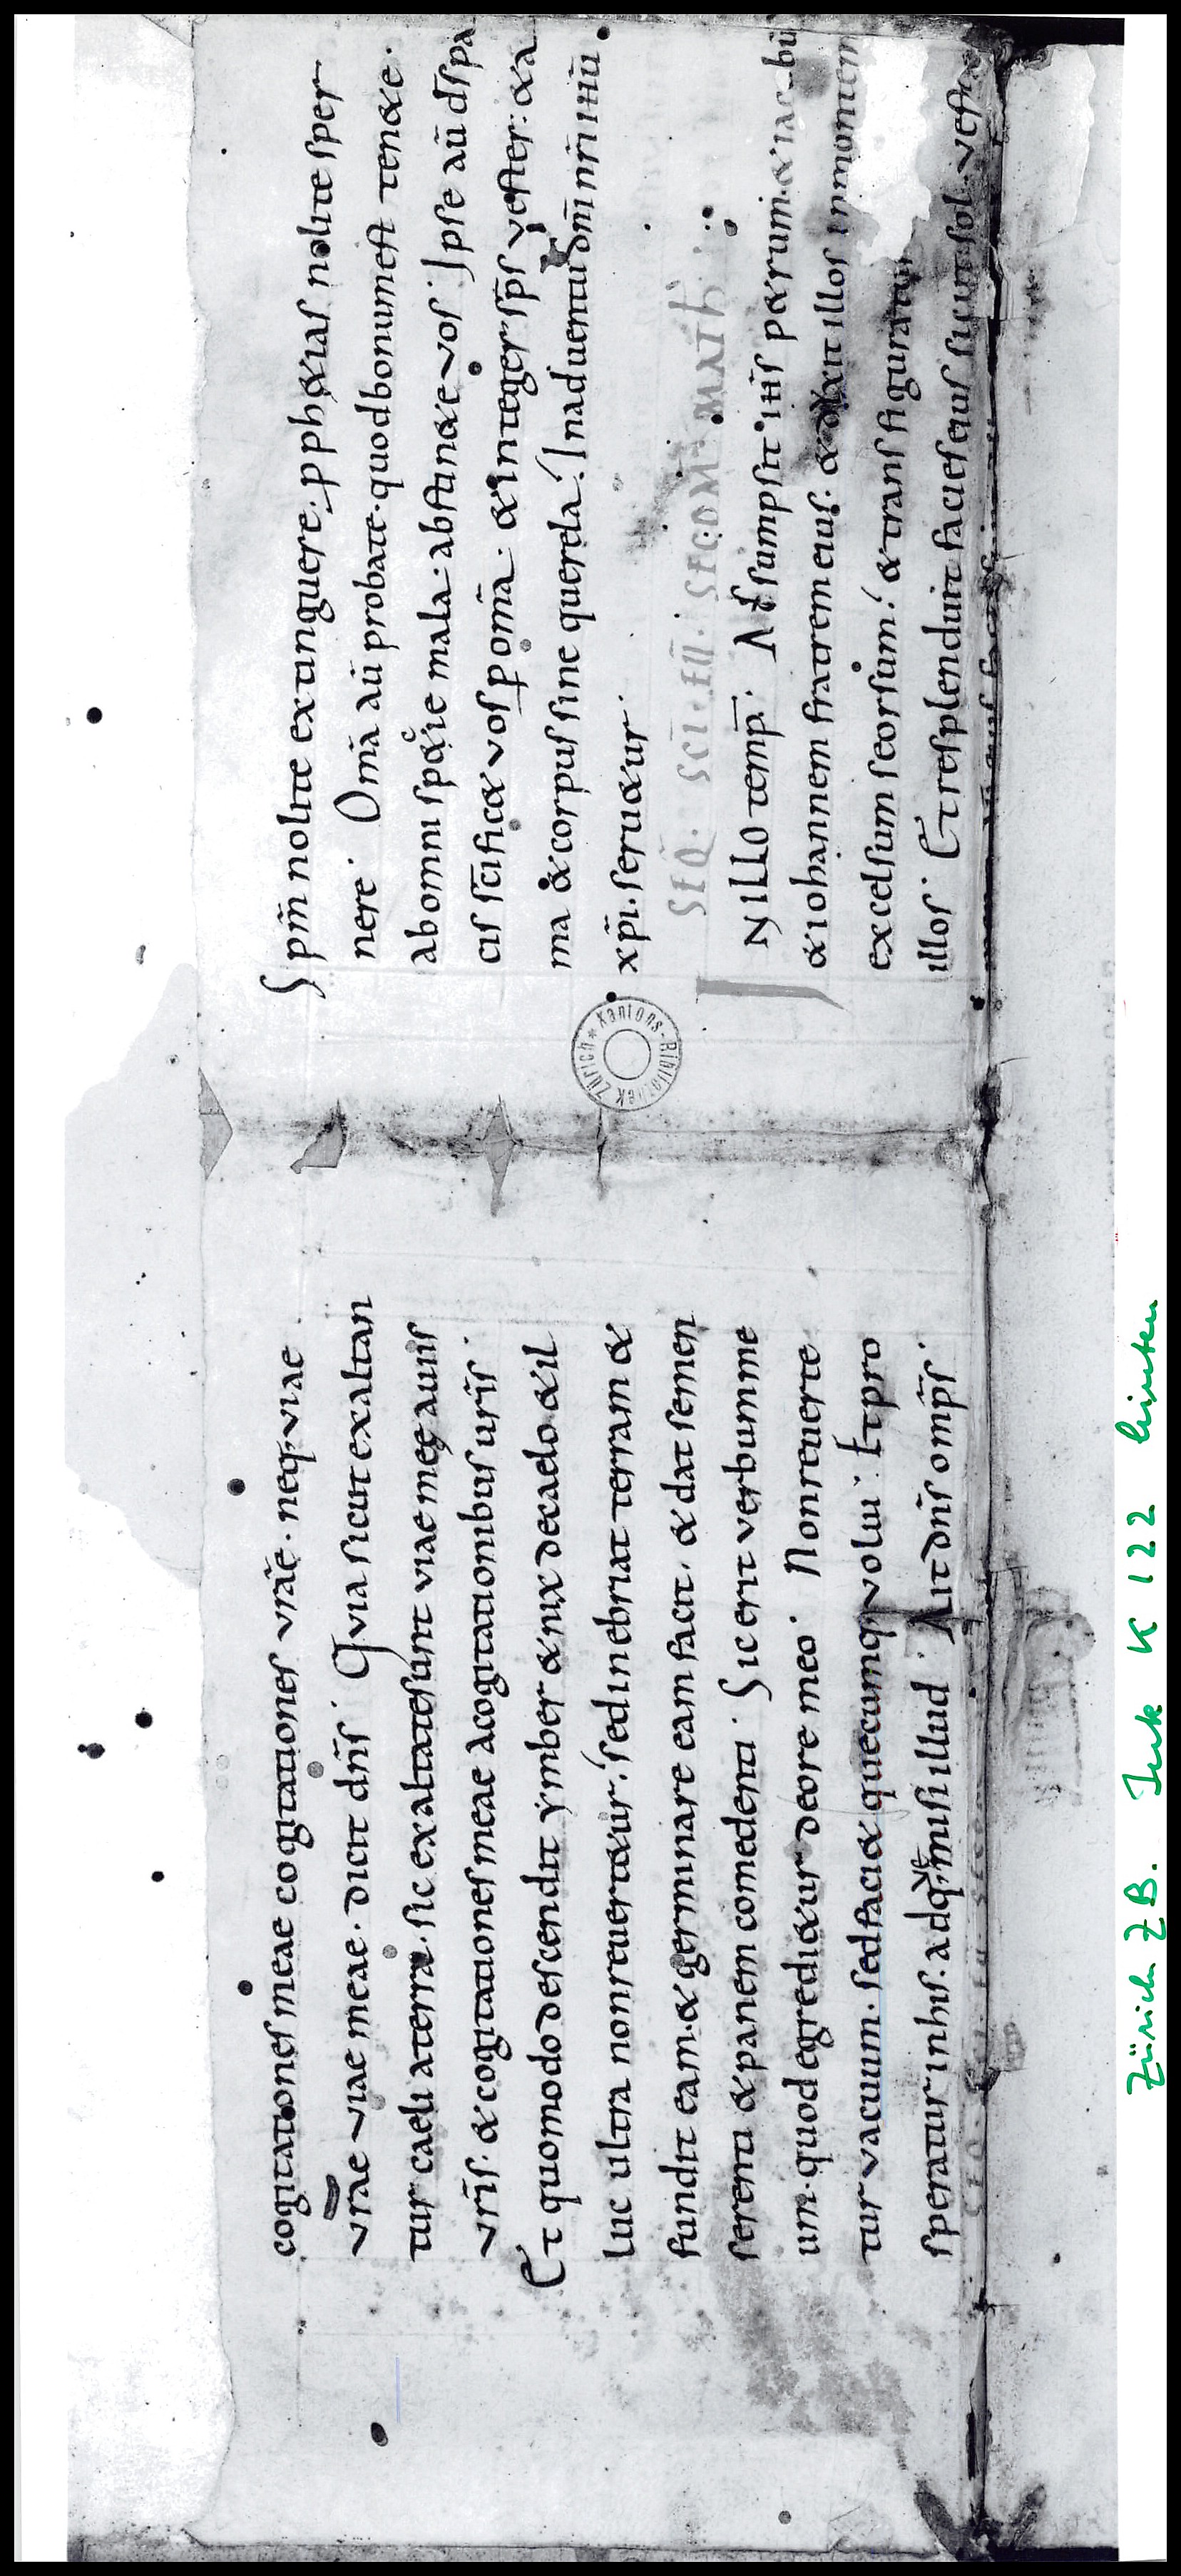 cogitationes meae cogitationes vr̄ae · neq; viae
vr̄ae viae meae · dicit dn̄s · Quia sicut exaltan
tur caeli a terra · sic exaltate sunt viae meę a viis
vr̄is · & cogitationes meae a cogitationibus ur̄is ·
Et quomodo descendit ymber & nix de caelo & il
luc ultra non reuert&ur · sed inebriat terram &
fundit eam · & germinare eam facit · & dat semen
serenti & panem comedenti · Sic erit verbum me
um · quod egredi&ur de ore meo · Non reuerte
tur vacuum · sed faci& quecumq; volui · Et pro
speratur in his · ad q; misi illud · Ait dn̄s omp̄s ·
Sp̄m nolite extinguere · pph&ias nolite sper
nere · Om̄a aū probate · quod bonum est ten&e ·
ab omni speciae mala · abstin&e vos · Ipse aū d̄s pa
cis sc̄ific& vos p om̄a · & integer sp̄s vester : & a
ma & corpus sine querela · In aduentu dn̄i nr̄i ihū
xp̄i · seru&ur ·
SEQ̄ · SC̄I · EŪ · SECOM̄ · MATH̄ ·
IN ILLO temp̄ · Assumpsit ih̄s p&rum · & iacobū
& iohannem fratrem eius · & duxit illos in montem
excelsum seorsum · & transfiguratus
illos · Et resplenduit facies eius sicut sol · vesti
Kantons-Bibliothek Zürich
Zürich ZB. Ink K 122 hinten